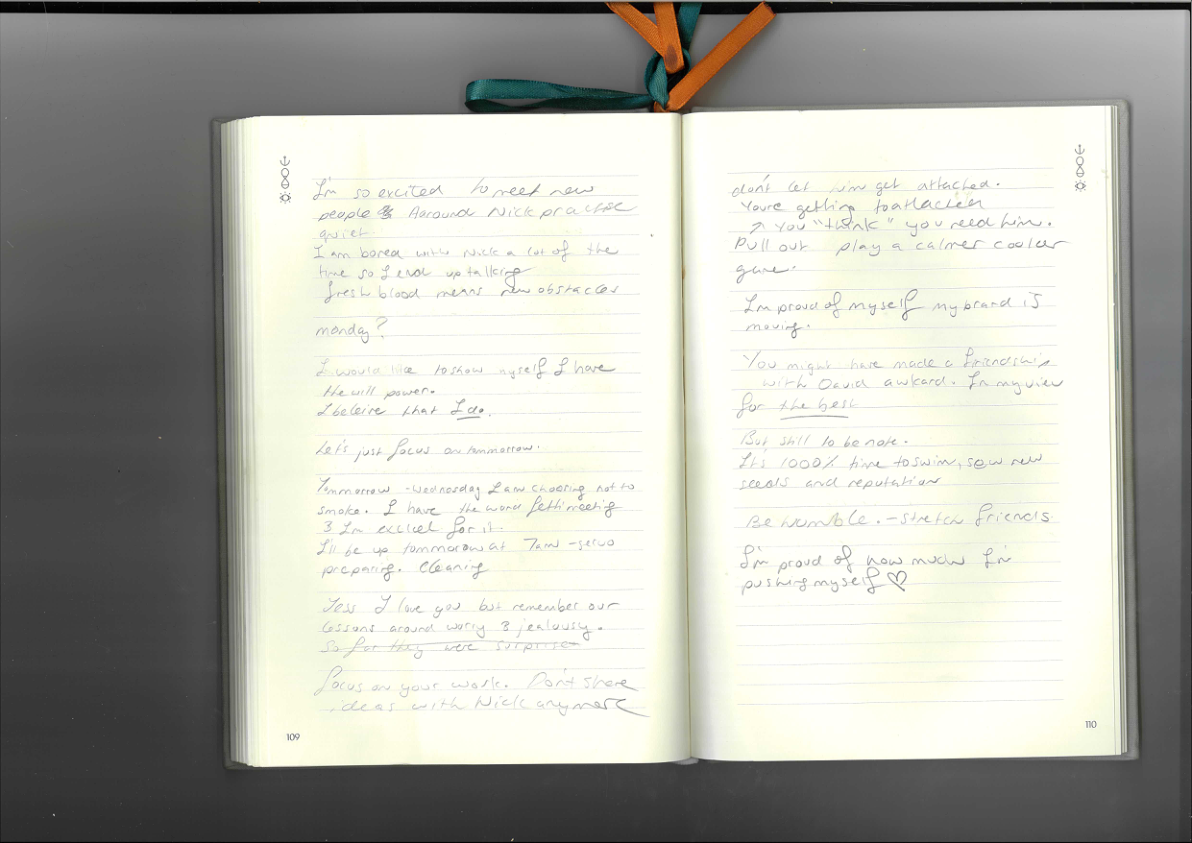 I'm so excited to meet new
people & Aaround Nick practise
quiet.
I am bored with Nick a lot of the
time so I end up talking
fresh blood means new obstacles
monday?
I would like to show myself I have
the will power.
I beleive that I do.
Let's just focus on tommorrow.
Tommorrow - Wednesday I am choosing not to
smoke. I have the word meeting
& I'm excited for it.
I'll be up tommorow at 7am - servo
preparing. Cleaning
Jess I love you but remember our
lessons around worry & jealousy.
So far they were surprise
focus on your work. Don't share
ideas with Nick anymore
109
don't let him get attached.
You're getting to attached
↗ You "think" you need him.
Pull out play a calmer cooler
game.
I'm proud of myself my brand is
moving.
You might have made a friendship
with David awkard. In my view
for the best
But still to be note.
It's 1000% time to swim, sow new
seeds and reputation
Be humble. - stretch friends.
I'm proud of how much I'm
pushing myself ♡
110